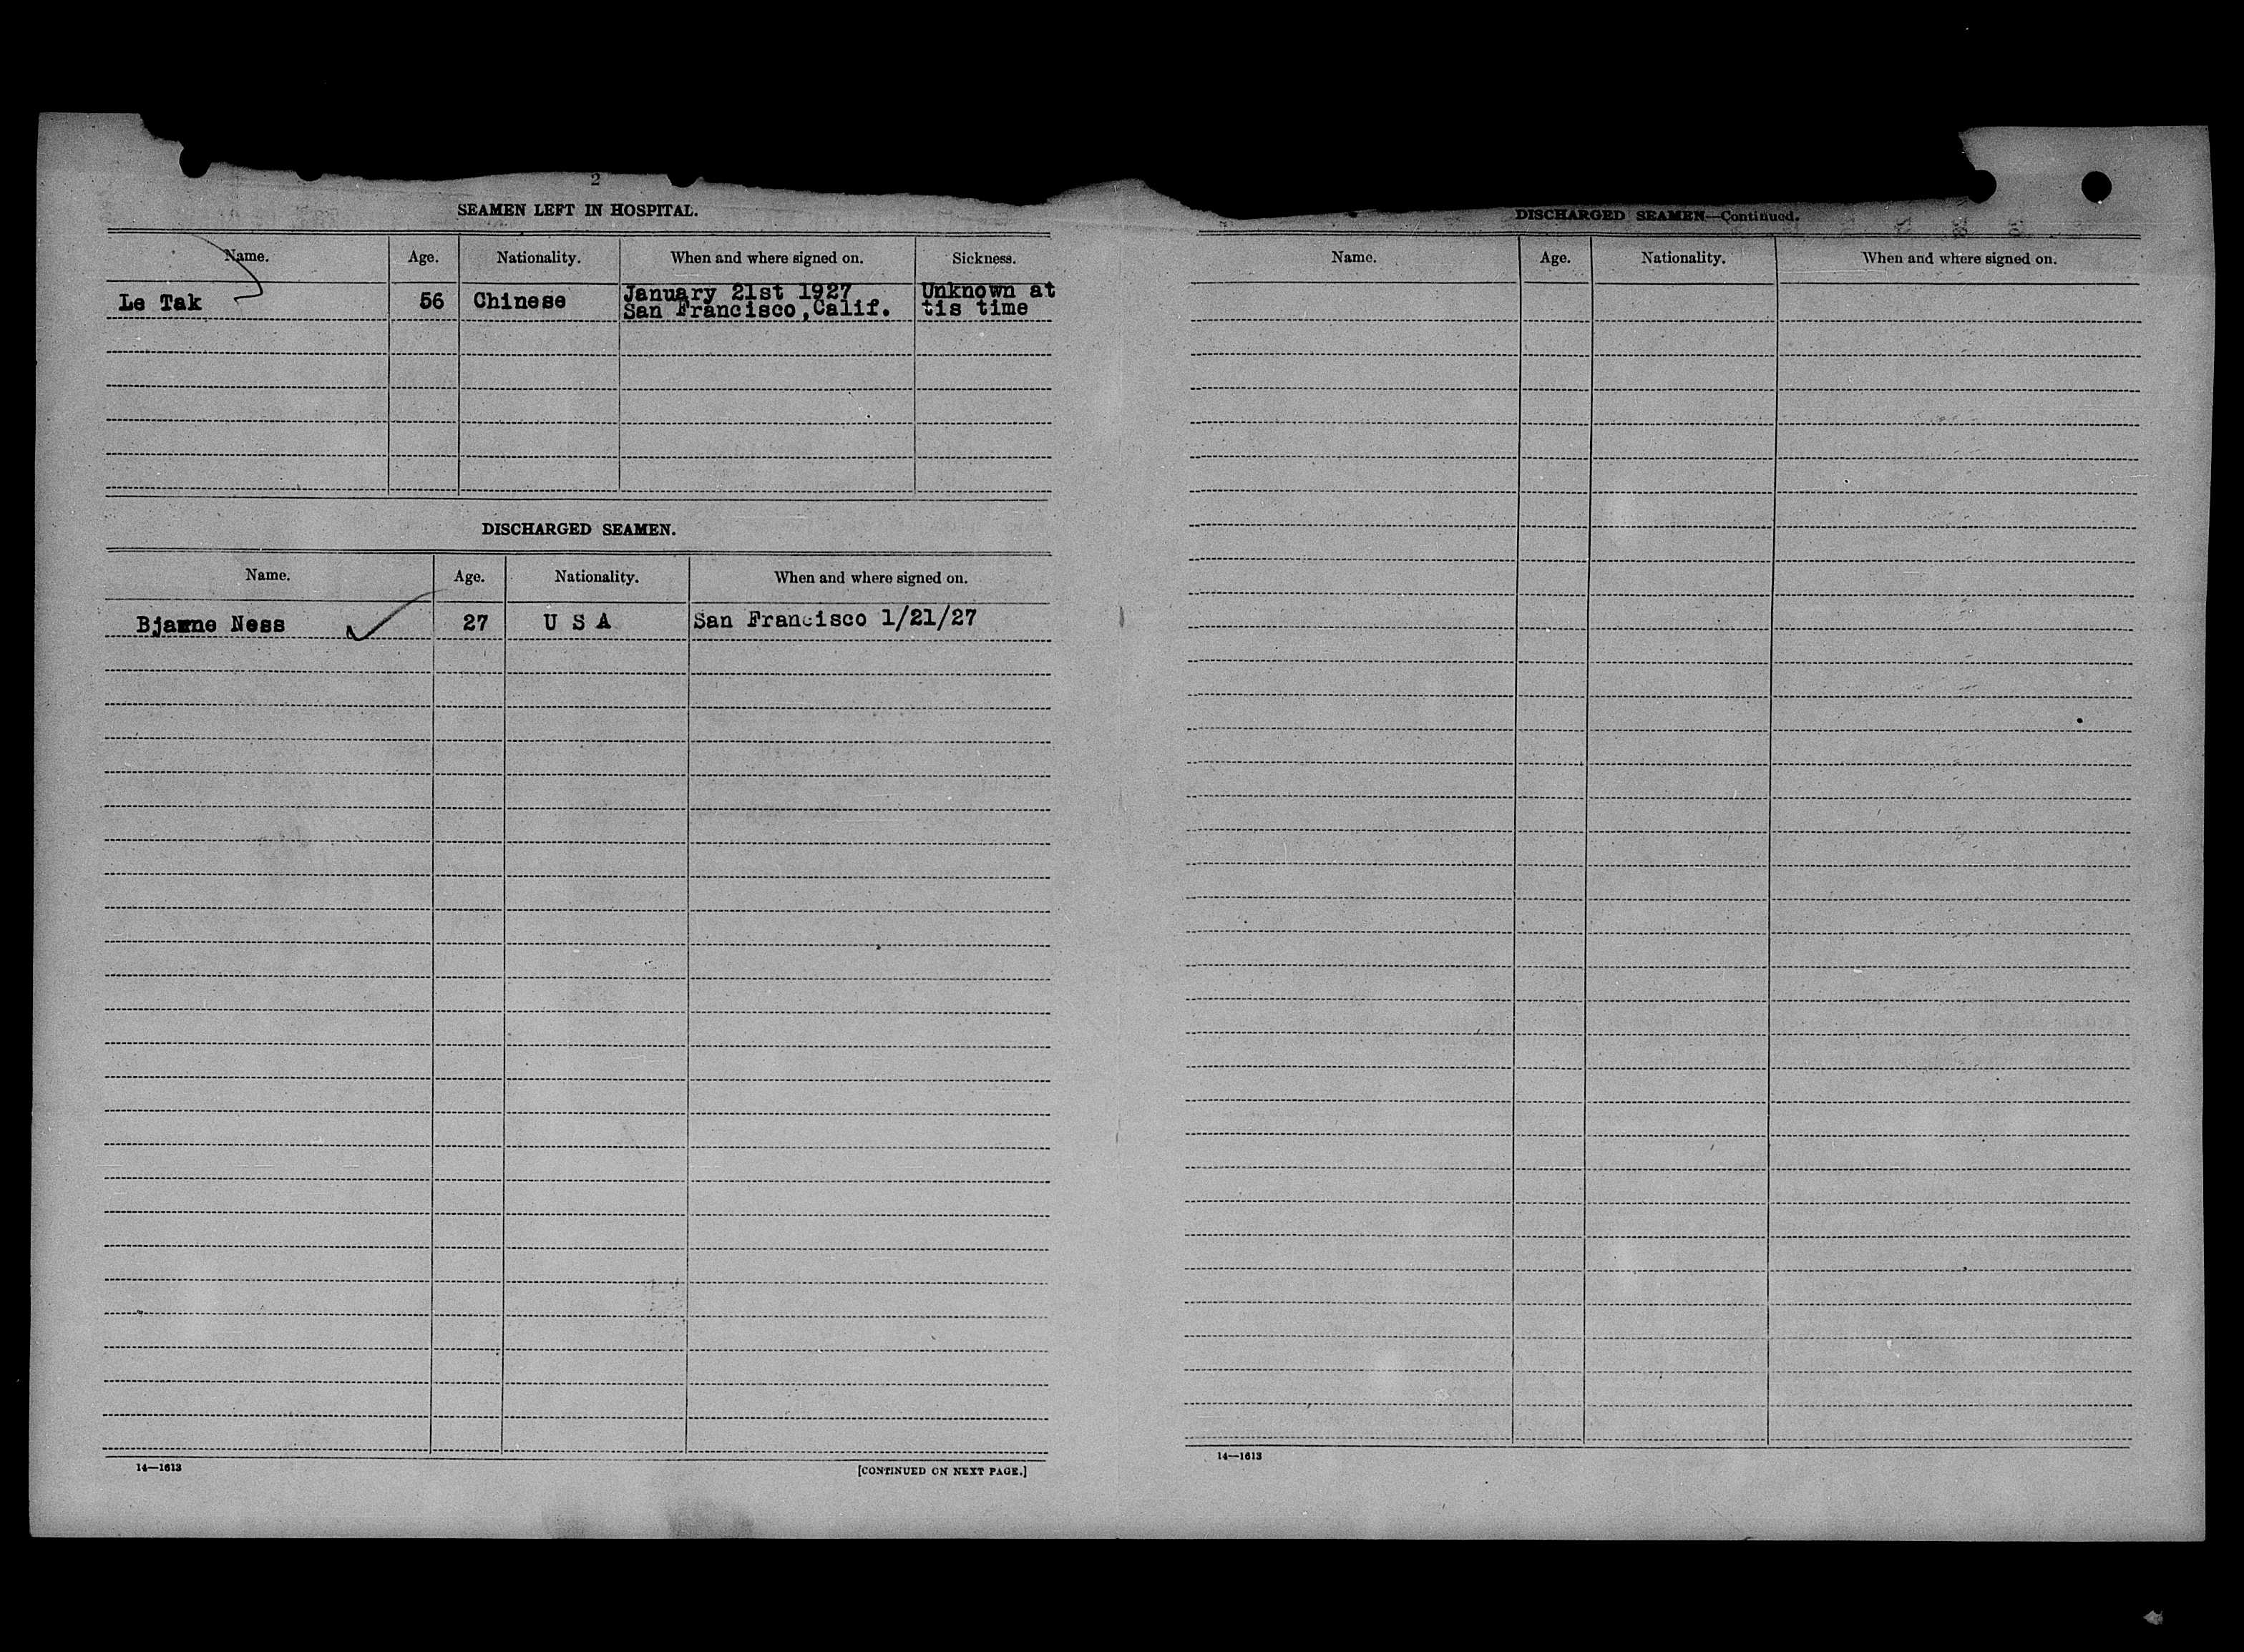 2
SEAMEN LEFT IN HOSPITAL.
Name. Age. Nationality. When and where signed on. Sickness.
Le Tak 56 Chinese January 21st 1927 Unknown at
San Francisco,Calif. tis time
DISCHARGED SEAMEN.
Name. Age. Nationality. When and where signed on.
Bjarne Ness 27 U S A San Francisco 1/21/27
14—1613 [CONTINUED ON NEXT PAGE.]
DISCHARGED SEAMEN—Continued.
Name. Age. Nationality. When and where signed on.
14—1613